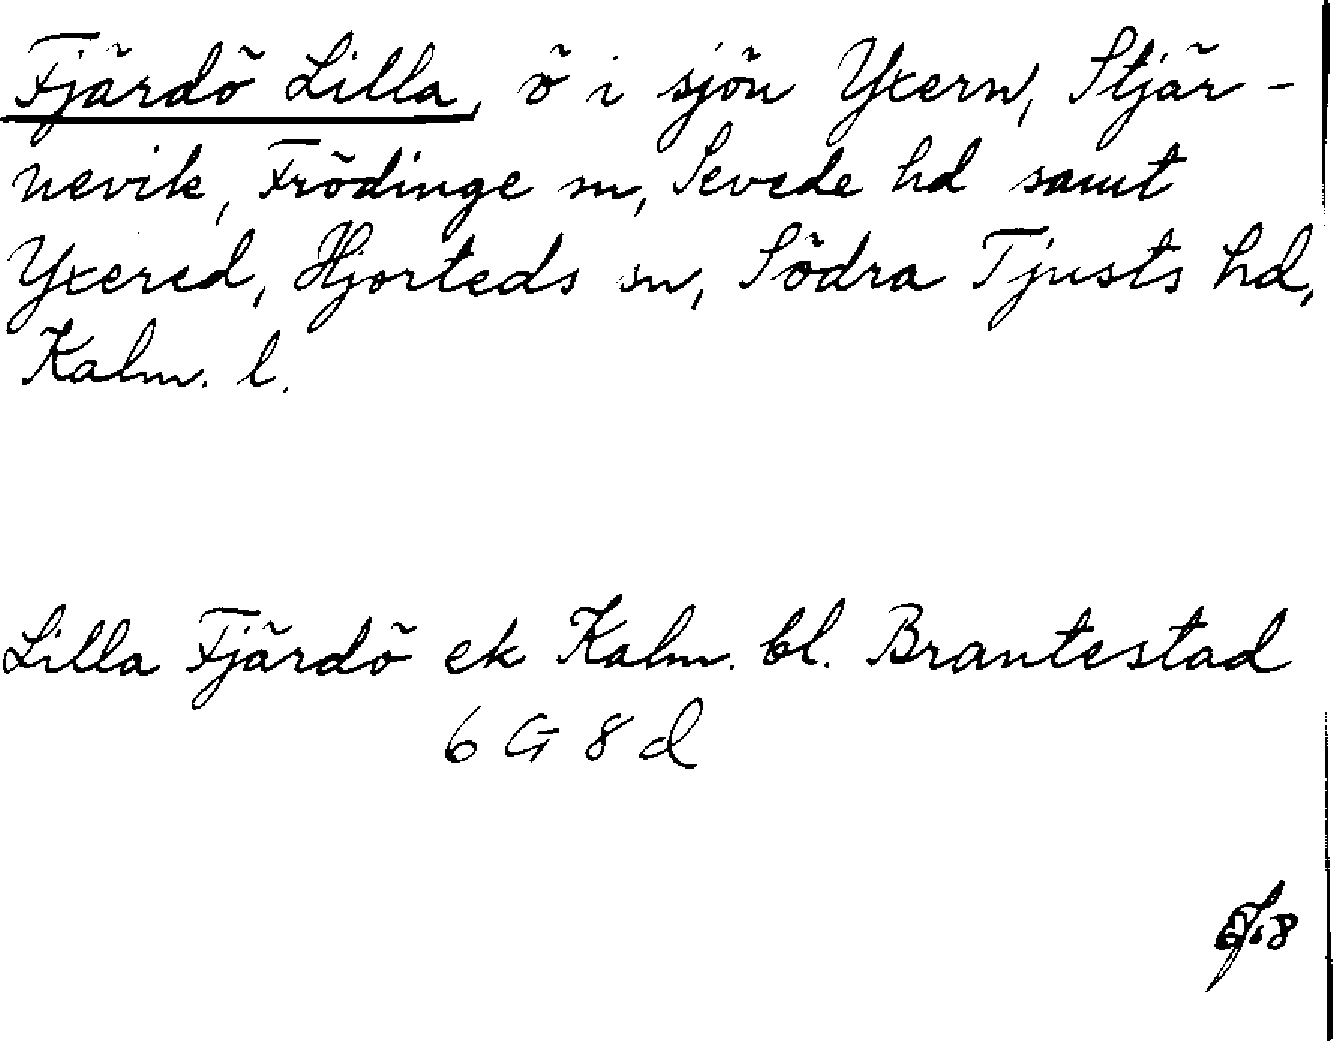 Fjärdö Lilla, ö i sjön Yxern, Stjär-
nevik, Frödinge sn, Sevede hd samt
Yxered, Hjorteds sn, Södra Tjusts hd,
Kalm. l.
Lilla Fjärdö ek Kalm. bl. Brantestad
6 G 8 d